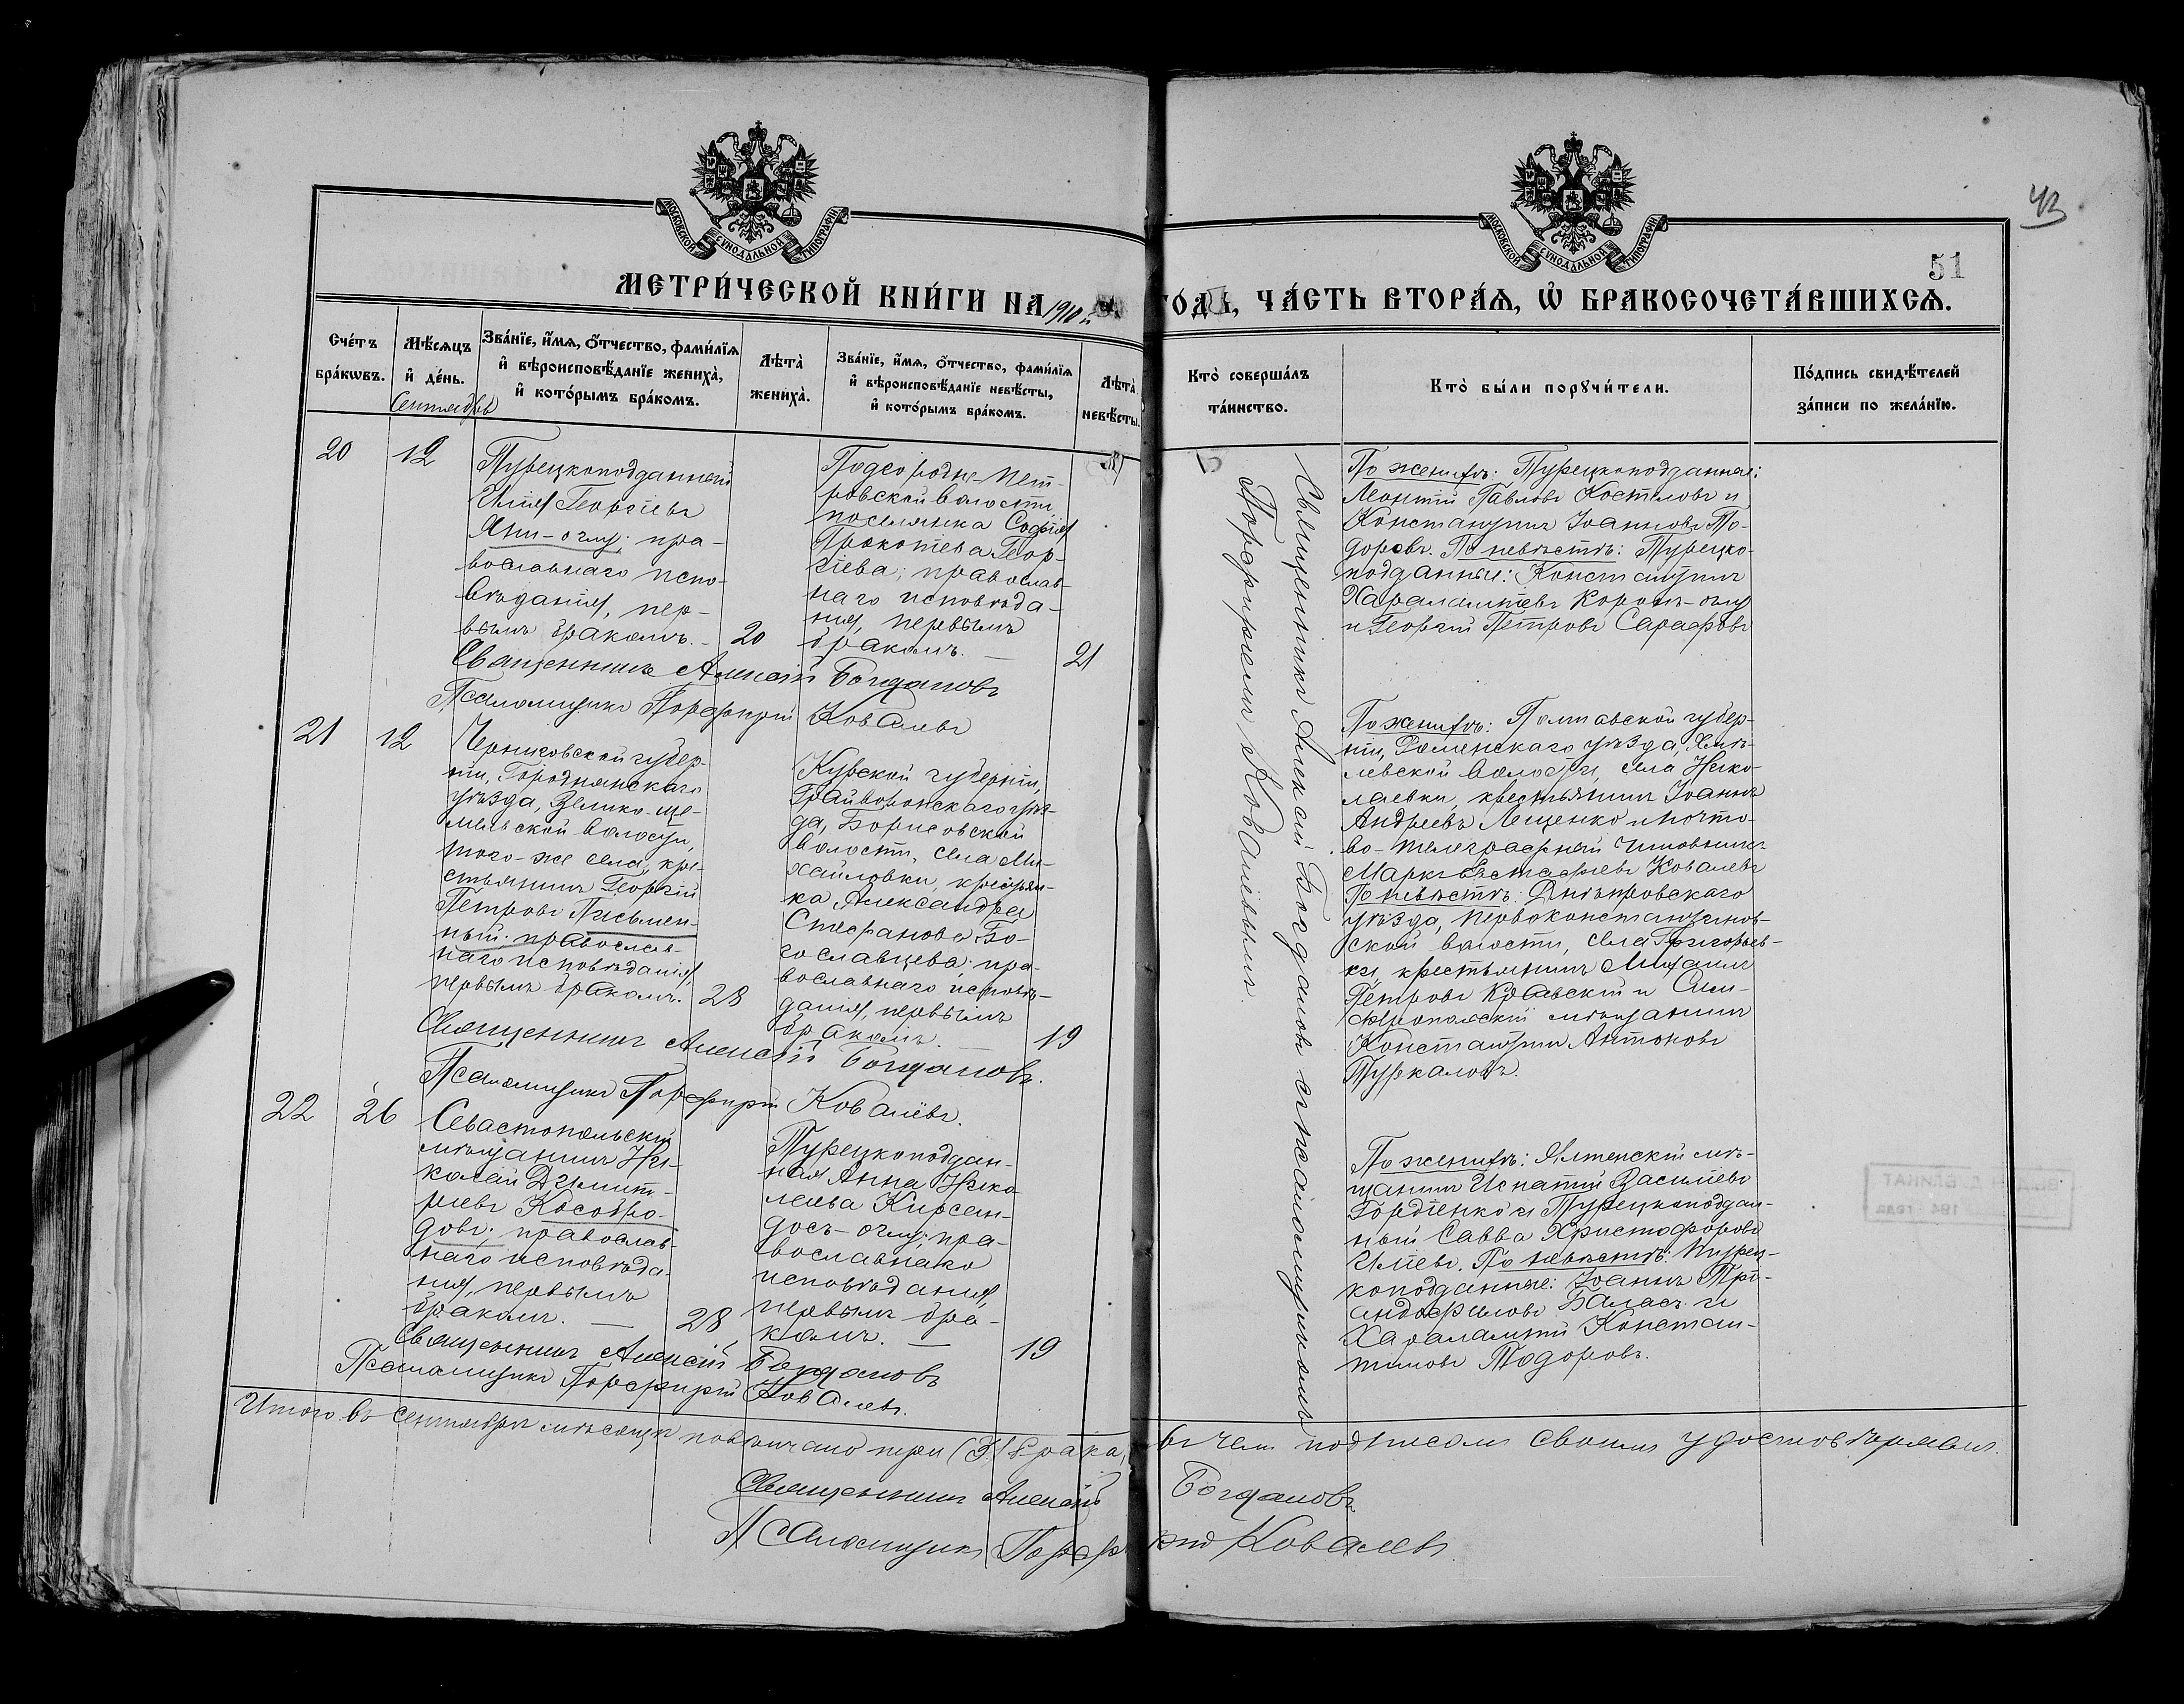 МОСКОВСКОЙ СУНОДАЛЬНОЙ ТИПОГРАФІИ
МОСКОВСКОЙ СУНОДАЛЬНОЙ ТИПОГРАФІИ
43
51
МЕТРИ́ЧЕСКОЙ КНИ́ГИ НА 1910 й
ГО́ДЪ, ЧА́СТЬ ВТОРА́Ѧ, Ѡ҆ БРАКОСОЧЕТА́ВШИХСѦ.
Сче́тъ
бра́кѡвъ.
Мѣ́сѧцъ
и҆ де́нь.
Сентябрь
Зва́нїе, и҆́мѧ, ѻ҆́тчество, фами́лїѧ
и҆ вѣроисповѣ́данїе жениха̀,
и҆ кото́рымъ бра́комъ.
Лѣта̀
жениха̀.
Зва́нїе, и҆́мѧ, ѻ҆́тчество, фами́лїѧ
и҆ вѣроисповѣ́данїе невѣ́сты,
и҆ кото́рымъ бра́комъ.
Лѣта̀
невѣ́сты.
Кто̀ соверша́лъ
та́инство.
Кто̀ бы́ли порꙋчи́тели.
По́дпись свидѣ́телей
за́писи по жела́нїю.
20
12
Турецкоподданный
Илія Георгіевъ
Яни-оглу; пра-
вославнаго испо-
вѣданія, пер-
вымъ бракомъ. –
20
Подгородне-Пет-
ровской волости
поселянка Софія
Прокопіева Геор-
гіева; православ-
наго исповѣда-
нія, первымъ
бракомъ. —
21
Священникъ Алексій Богдановъ
Псаломщикъ Порфирій Ковалевъ
Священникъ Алексій Богдановъ съ псаломщикомъ
Порфиріемъ Ковалевымъ.
По женихѣ: Турецкоподданные:
Леонтій Павловъ Костиловъ и
Константинъ Іоанновъ То-
доровъ. По невѣстѣ: Турецко-
подданные: Константинъ
Харалампіевъ Коронъ-оглу
и Георгій Петровъ Сарафовъ
21
12
Черниговской губер-
ніи, Городнянскаго
уѣзда, Велико-ще-
мельской волости,
того-же села, кре-
стьянинъ Георгій
Петровъ Письмен-
ный; православ-
наго исповѣданія,
первымъ бракомъ.
28
Курской губерніи,
Грайворонскаго уѣз-
да, Борисовской
волости, села Ми-
хайловки, крестьян-
ка Александра
Стефанова Бо-
гославцева; пра-
вославнаго исповѣ-
данія, первымъ
бракомъ. —
19
Священникъ Алексій Богдановъ.
Псаломщикъ Порфирій Ковалёвъ.
По женихѣ: Полтавской губер-
ніи, Роменскаго уѣзда, Хмѣ-
левской волости, села Нико-
лаевки, крестьянинъ Іоаннъ
Андреевъ Лещенко и почто-
во-телеграфный чиновникъ
Маркъ Евстафіевъ Ковалевъ
По невѣстѣ: Днѣпровскаго
уѣзда, Первоконстантинов-
ской волости, села Григорьев-
ки, крестьянинъ Михаилъ
Петровъ Кравскій и Сим-
феропольскій мѣщанинъ
Константинъ Антоновъ
Пушкаловъ.
22
26
Севастопольскій
мѣщанинъ Ни-
колай Димит-
ріевъ Кособро-
довъ; православ-
наго исповѣда-
нія, первымъ
бракомъ. —
28
Турецкоподдан-
ная Анна Нико-
лаева Кирсан-
досъ-оглу; пра-
вославнаго
исповѣданія,
первымъ бра-
комъ. —
19
Священникъ Алексій Богдановъ
Псаломщикъ Порфирій Ковалевъ.
По женихѣ: Ялтенскій мѣ-
щанинъ Игнатій Василіевъ
Гордіенко и Турецкоподдан-
ный Савва Христофоровъ
Иліевъ. По невѣстѣ: Турец-
коподданные: Іоаннъ Трі-
андофиловъ Баласъ и
Харалампій Констан-
тиновъ Тодоровъ.
Итого въ сентябрѣ мѣсяцѣ повѣнчано три (3) брака, въ чемъ подписомъ своимъ удостовѣряемъ.
Священникъ Алексій Богдановъ
Псаломщикъ Порфирій Ковалевъ